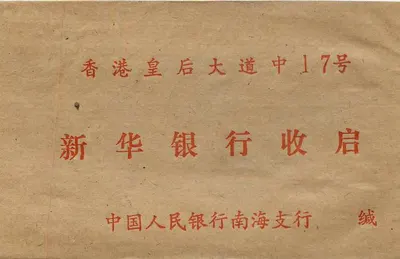 香港皇后大道中17号
新华银行收启
中国人民银行南海支行 缄